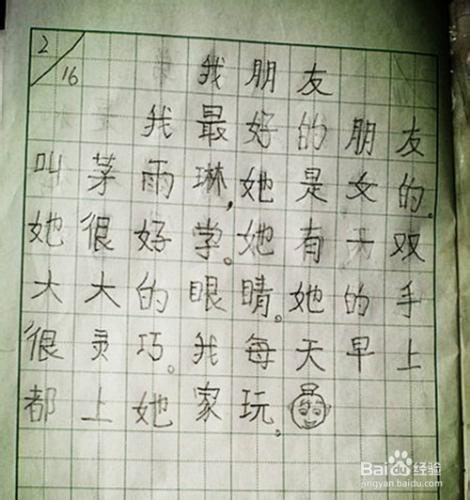 2/16
我朋友
我最好的朋友
叫茅雨琳,她是女的。
她很好学。她有一双
大大的眼睛。她的手
很灵巧。我每天早上
都上她家玩。
Baidu经验
jingyan.baidu.com